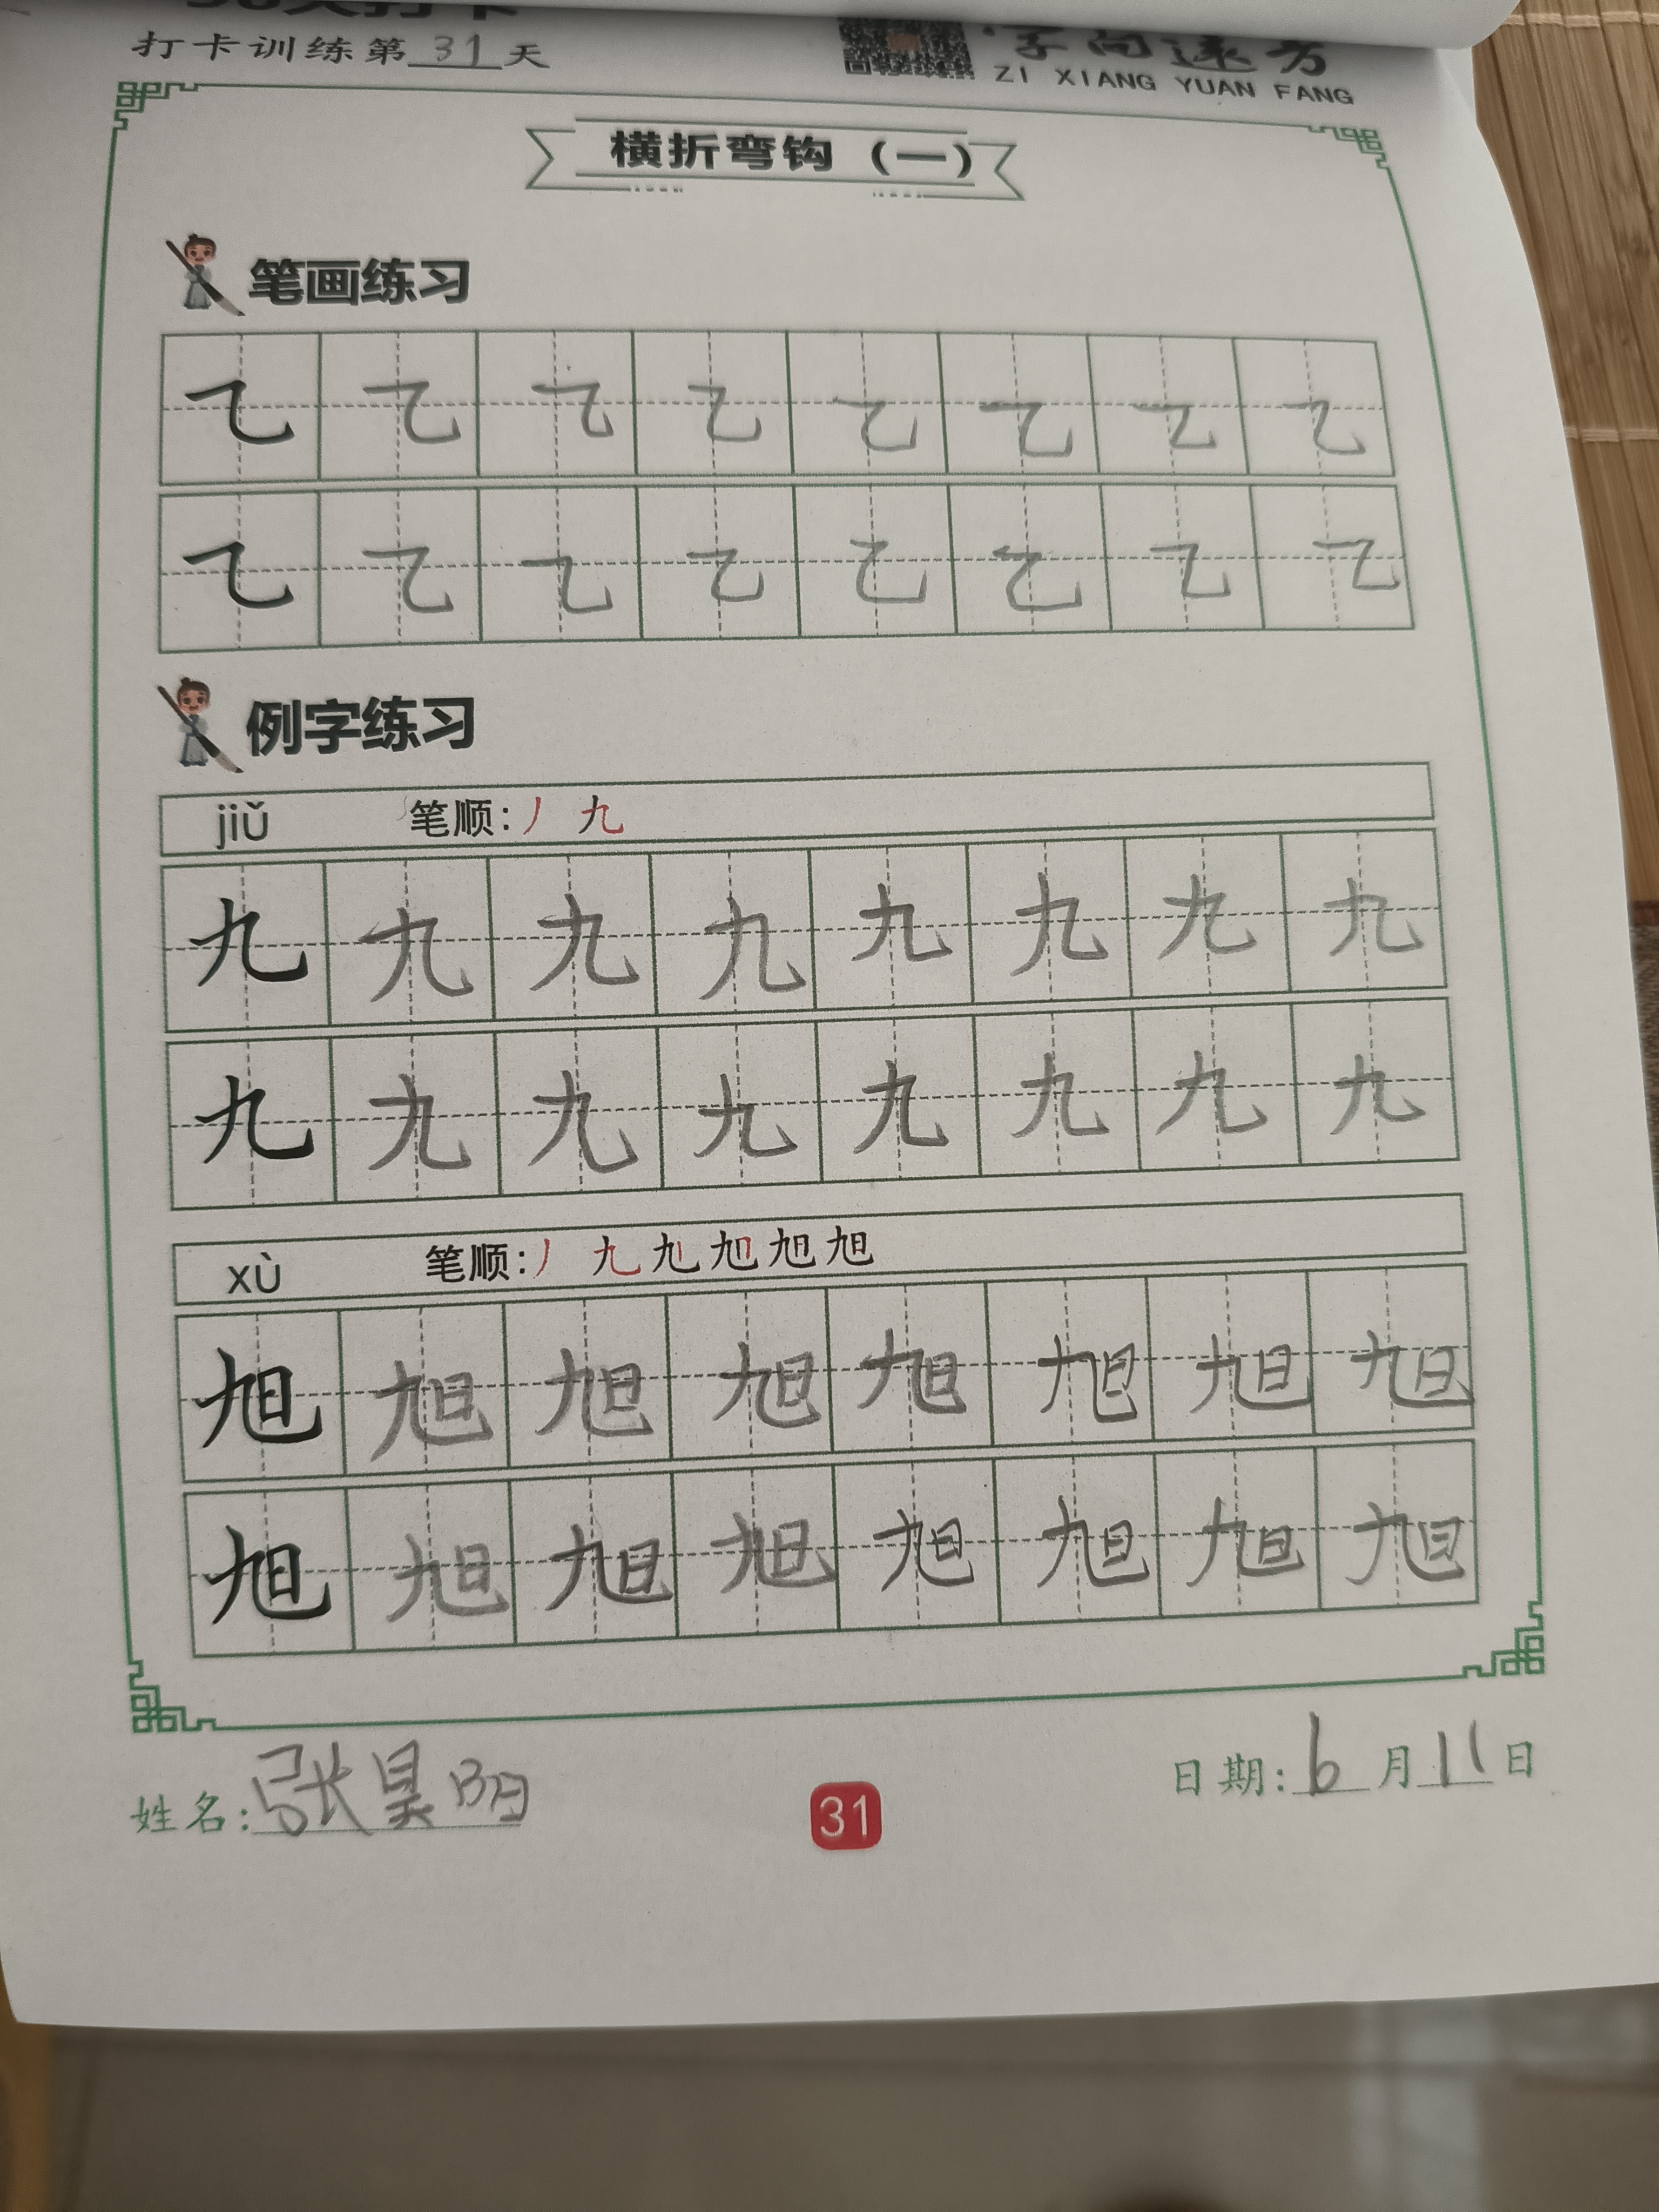 打卡训练第31天
字向远方
ZI XIANG YUAN FANG
横折弯钩（一）
笔画练习
㇈ ㇈ ㇈ ㇈ ㇈ ㇈ ㇈ ㇈
㇈ ㇈ ㇈ ㇈ ㇈ ㇈ ㇈ ㇈
例字练习
jiǔ 笔顺：丿 九
九 九 九 九 九 九 九 九
九 九 九 九 九 九 九 九
xù 笔顺：丿 九 旭 旭 旭 旭
旭 旭 旭 旭 旭 旭 旭 旭
旭 旭 旭 旭 旭 旭 旭 旭
姓名：张昊明
31
日期：6月11日